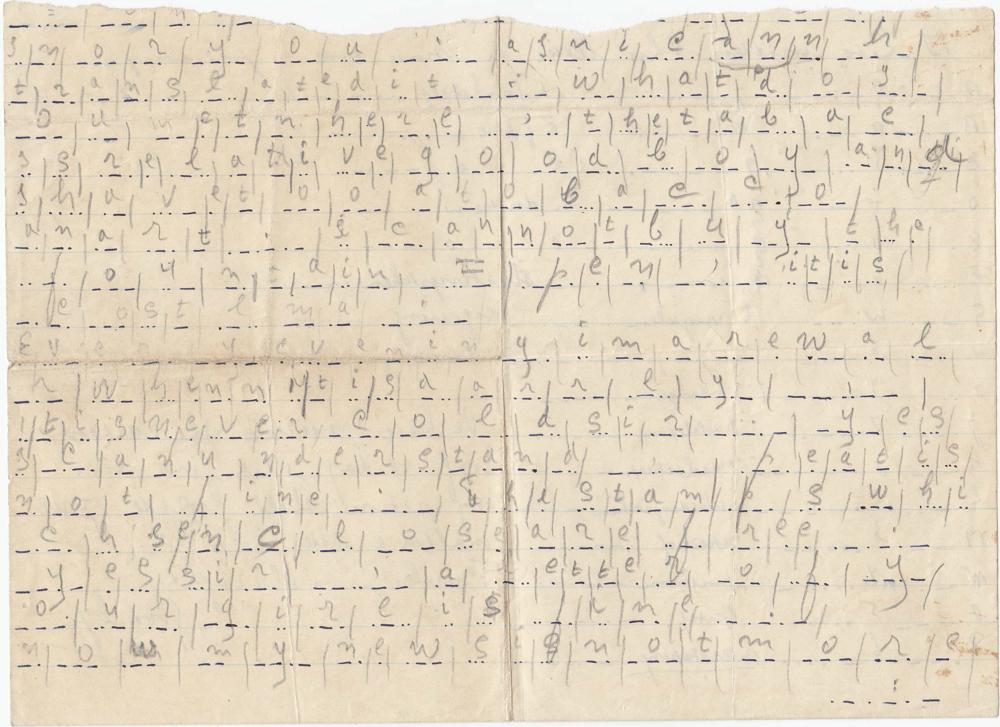 s n o r y o u i a s n i c d n n h
t r a n s l a t e d i t i w h a t d o s
o u m e t n h e r e , t h e t a b a e
s s r e l a t i v e g o o d b o y a n d
s h a v e t o o a t o b a c c o
a n a r t . s c a n n o t b u y t h e
f o u n t a i n = p e n , i t i s
c o s t l m a
e v e r y e v e n i n y i m a r e w a l
r w h e n n i t i s d a r r l y
i t i s n e v e r c o l d s i r y e s
s c a n u n d e r s t a n d p e a t i s
n o t f i n e t h e s t a m p s w h i
c h s e n c l o s e a r e f r e e
y e s s i r , a l e t t e r o f y
o u r g i r l i s f i n e
n o w m y n e w s i s n o t m o r e